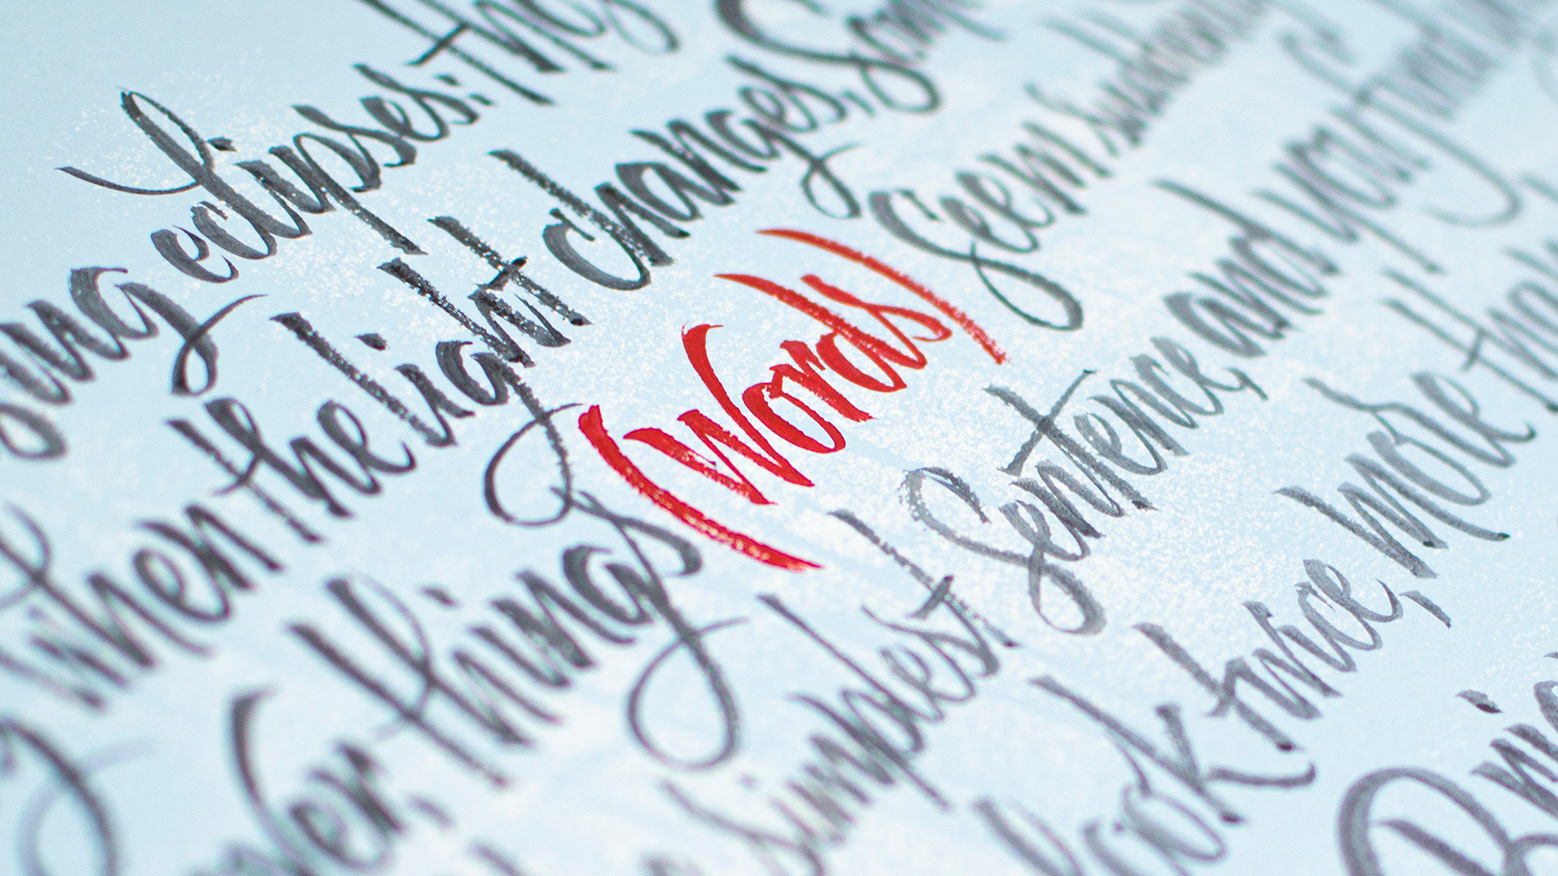 eclipses: the
when the light changes, Som
things (Words) Seem suddenly
simplest Sentence, and you find
look twice, more